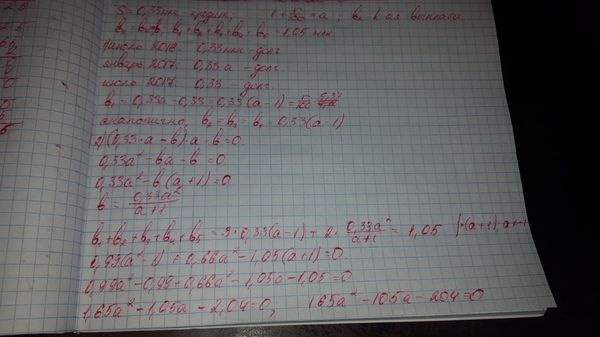 S = 0,33 млн кредит, 1 + r/100 = a ; bk k-ая выплата
b1 = b2 = b3, b1 + b2 + b3 + b4 + b5 = 1,05 млн
июль 2016 0,33 млн - долг
январь 2017 0,33 a - долг
июль 2017 0,33 - долг
b1 = 0,33a - 0,33 = 0,33 (a - 1) =
аналогично, b2 = b3 = b1 = 0,33 (a - 1)
2) (0,33 · a - b) · a - b = 0
0,33a² - ba - b = 0
0,33a² - b(a + 1) = 0
b = 0,33a²/a+1
b1 + b2 + b3 + b4 + b5 = 3 · 0,33(a - 1) + 2 · 0,33a²/a+1 = 1,05 | · (a + 1), a ≠ -1
0,99(a² - 1) + 0,66a² - 1,05(a + 1) = 0
0,99a² - 0,99 + 0,66a² - 1,05a - 1,05 = 0
1,65a² - 1,05a - 2,04 = 0, 165a² - 105a - 204 = 0